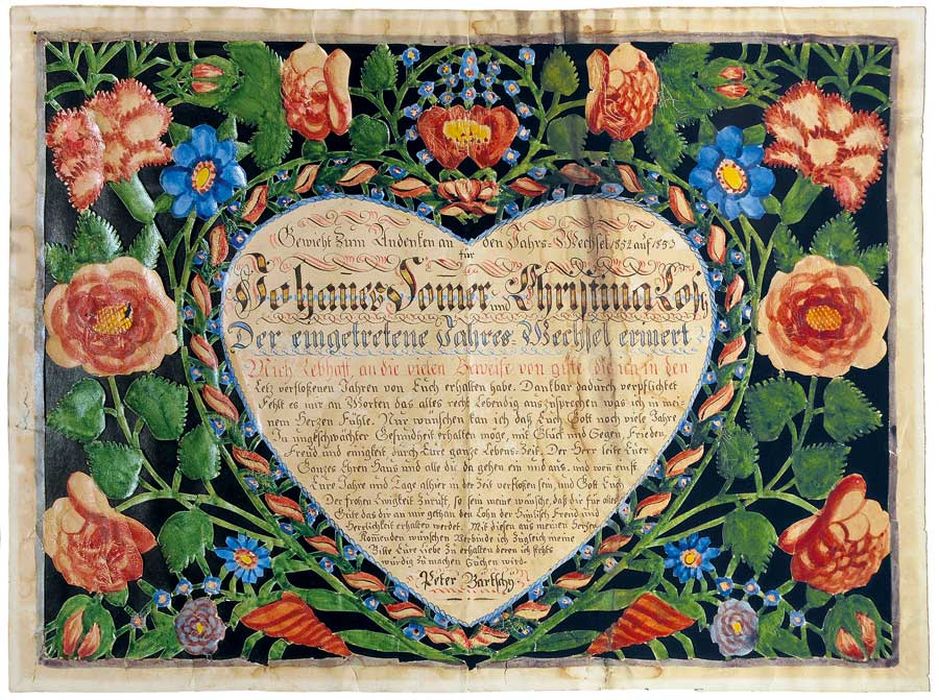 Geweiht Zum Andenken an den Jahrs-Wechsel 1852 auf 1853
für
Johannes Somer und Christina Lose
Der eingetretene Jahres-Wechsel erinert
Mich Lebhaft an die vielen Beweise von güte, die ich in den
Letz verfloßenen Jahren von Euch erhalten habe. Dankbar dadurch verpflichtet
Fehlt es mir an Worten das alles recht Lebendig auszusprechen was ich in mei-
nem Herzen Fühle. Nur wünschen kan ich daß Euch Gott noch viele Jahre
In ungeschwächter Gesundheit erhalten möge, mit Glück und Segen, Frieden,
Freud und einigkeit durch Eure ganze Lebens-Zeit. Der Herr leite Euer
Ganzes Ehren Haus und alle die da gehen ein und aus. und wen einst
Eure Jahre und Tage alhier in der Zeit verfloßen sein, und Gott Euch
Der frohen Ewigkeit so sein meine wünsche, daß dir für alles
Gute das dir an mir gethan den Lohn der Himlisch Freud und
Herrlichkeit erhalten werdet. Mit diesen aus meinen Herzen
Komenden wünschen Verbinde ich Zugleich meine
Bitte Eure Liebe Zu erhalten deren ich stehts
würdig Zu machen Suchen wird-
Peter Bärtschy